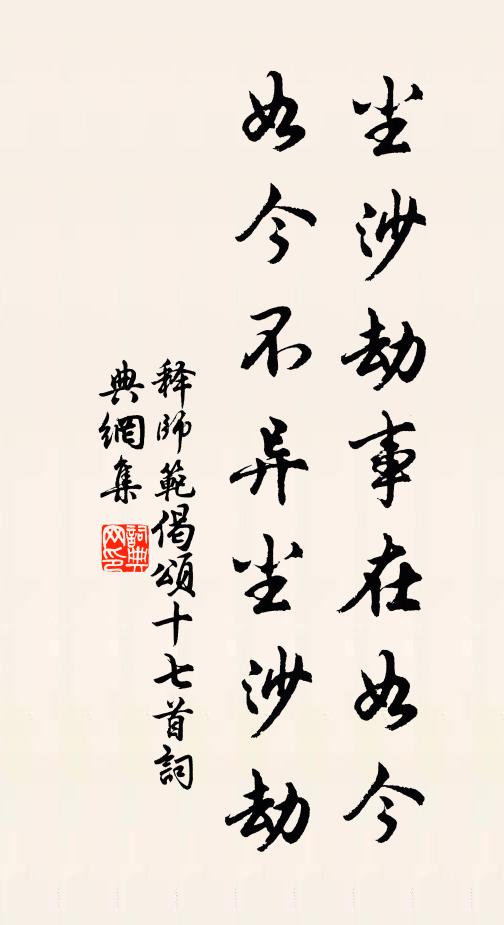 尘沙劫事在如今
如今不异尘沙劫
释师範偈頌十七首詞
典網集
詞典网印